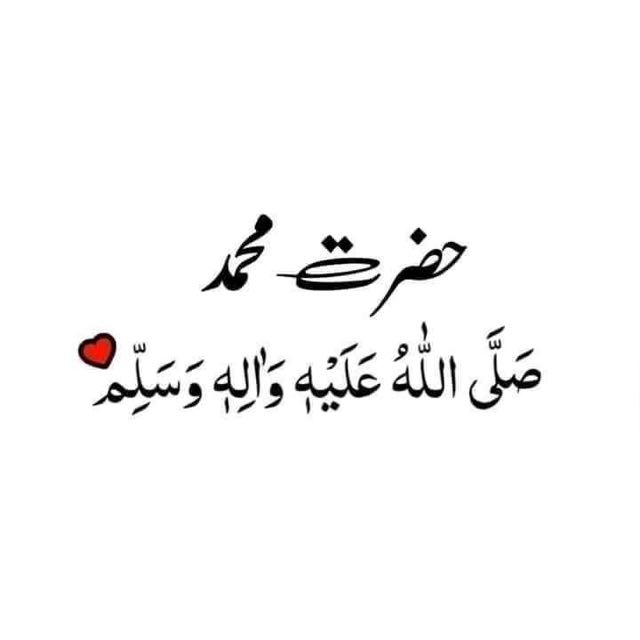 حضرت محمد
صَلَّى اللّٰهُ عَلَيْهِ وَاٰلِهٖ وَسَلِّم